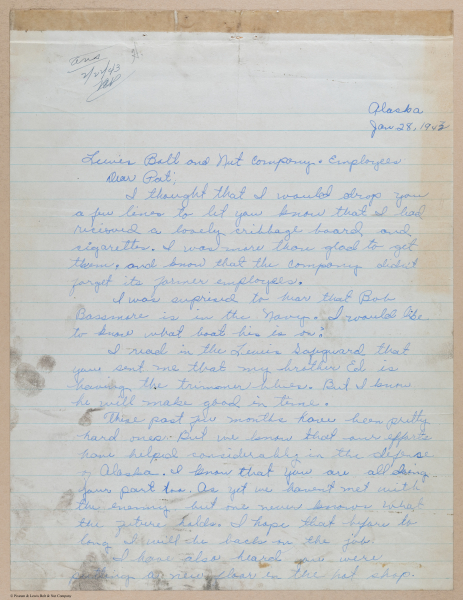 ans
2/22/43
Alaska
Jan 28, 1943
Lewis Bolt and Nut Company. Employees
Dear Pat;
I thought that I would drop you
a few lines to let you know that I had
received a lovely cribbage board and
cigarettes. I was more than glad to get
them, and know that the company didn't
forget its former employees.
I was suprised to hear that Bob
Bassmore is in the Navy. I would like
to know what boat his is on?
I read in the Lewis Safeguard that
you sent me that my brother Ed is
having the trimmer blues. But I know
he will make good in time.
These past few months have been pretty
hard ones. But we know that our efforts
have helped considerably in the defense
of Alaska. I know that you are all doing
your part too. As yet we haven't met with
the enemy but one never knows what
the future holds. I hope that before to
long I will be back on the job.
I have also heard were
putting a new floor in the nut shop.
© Picture & Lewis Bolt & Nut Company